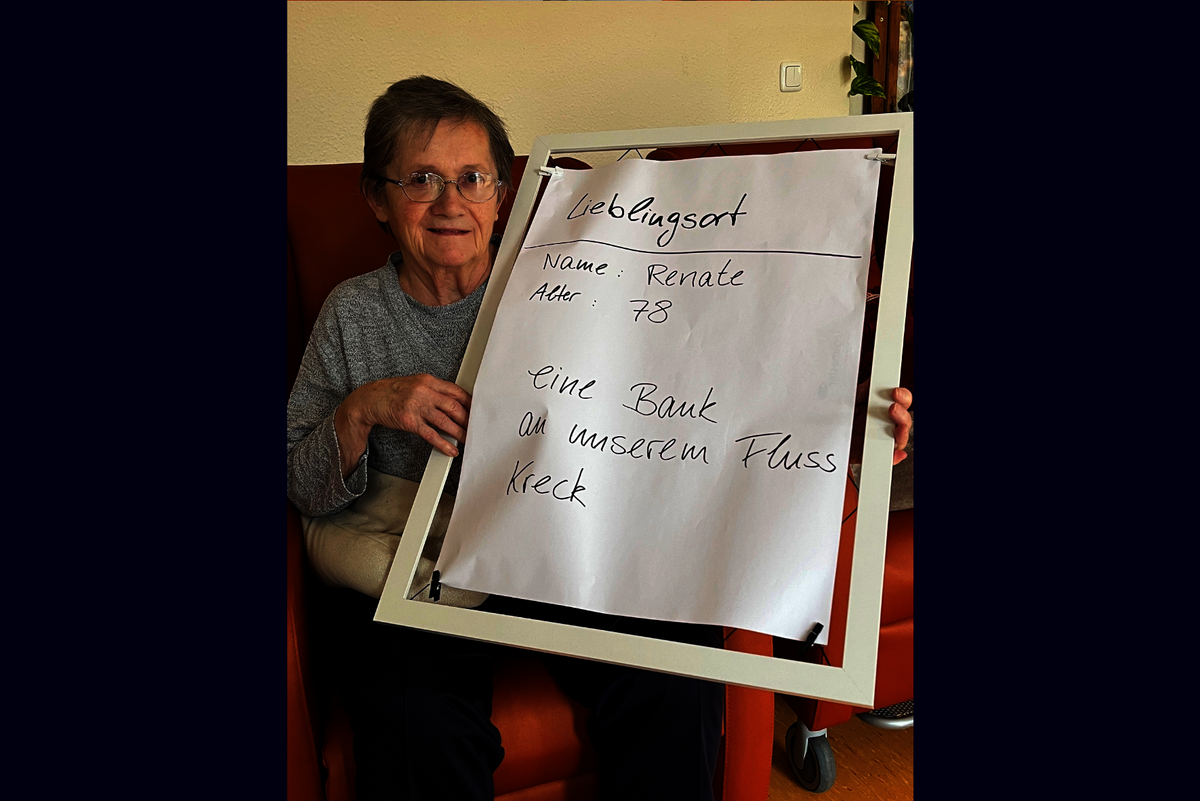 Lieblingsort
Name: Renate
Alter: 78
eine Bank
an unserem Fluss
Kreck